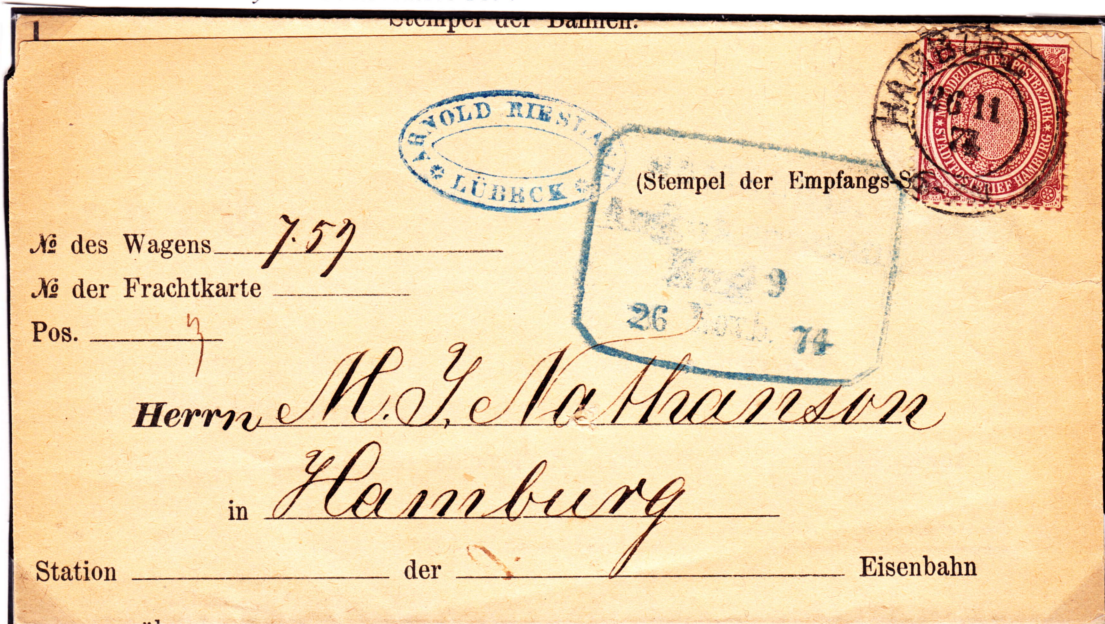 Stempel der Bahnen.
HAMBURG
11
74
NORDDEUTSCHER POSTBEZIRK * STADTPOSTBRIEF HAMBURG *
ARNOLD
LÜBECK
(Stempel der Empfangs-S
№ des Wagens 7.57
9
26 Novb. 74
№ der Frachtkarte
Pos.
Herrn M. J. Nathanson
in Hamburg
Station der Eisenbahn